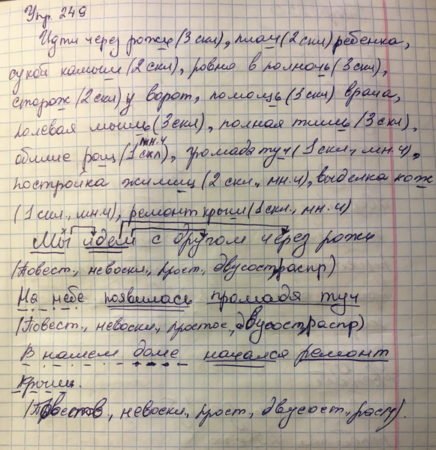 Упр. 249
Идти через рожь (3 скл), плач (2 скл) ребенка,
сухой камыш (2 скл), ровно в полночь (3 скл),
сторож (2 скл) у ворот, помощь (3 скл) врача,
полевая мышь (3 скл), полная тишь (3 скл),
обилие рощ (1 скл, мн.ч), громада туч (1 скл, мн.ч),
постройка жилищ (2 скл, мн.ч), выделка кож
(1 скл, мн.ч), ремонт крыш (1 скл, мн.ч)
Мы идем с другом через рожь
(Повест, невоскл, прост, двусост, распр)
На небе появилась громада туч
(Повест., невоскл, простое, двусост, распр)
В нашем доме начался ремонт
крыш.
(Повеств, невоскл, прост, двусост, расп).